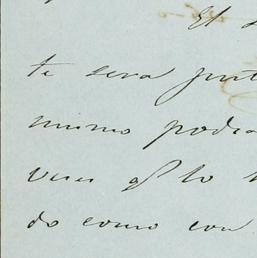 El
te sera
mismo podra
veces qe lo
do como con